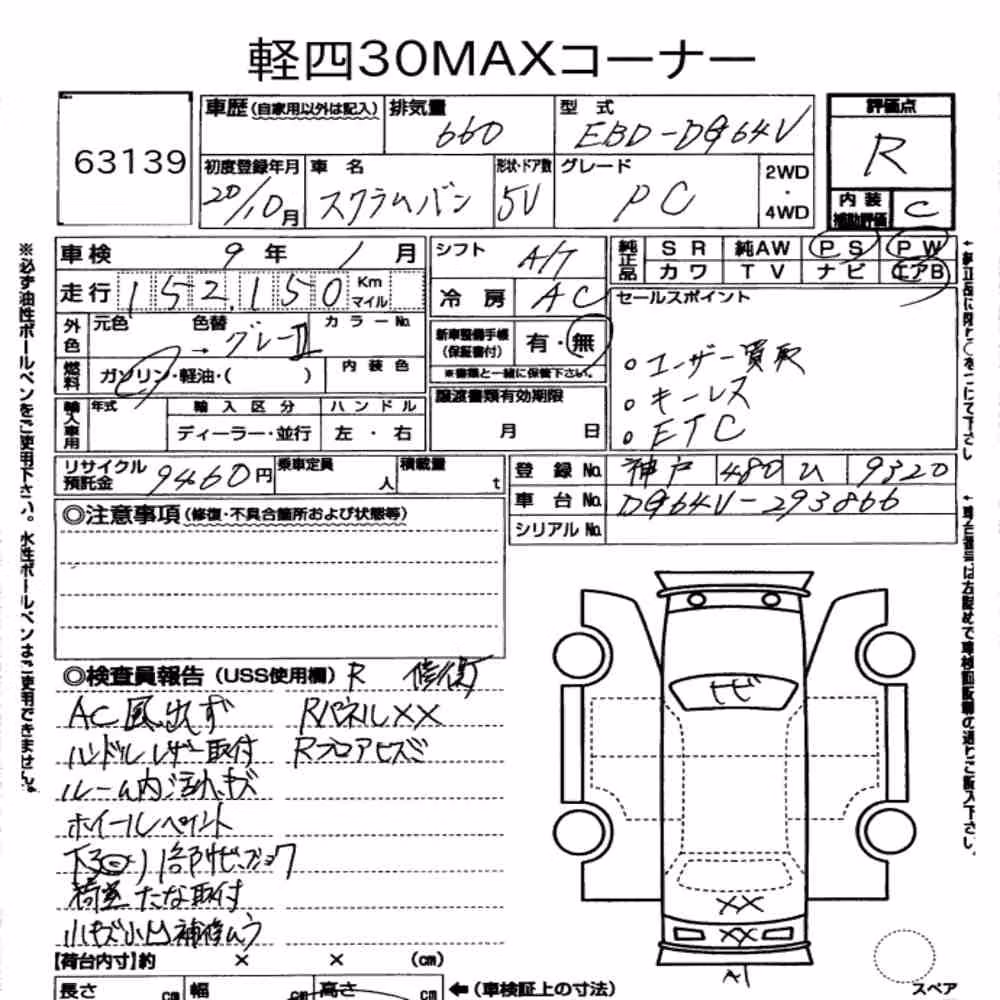 軽四30MAXコーナー
63139
車歴(自家用以外は記入) 排気量 660 型式 EBD-DG64V 評価点 R
初度登録年月 20/10月 車名 スクラムバン 形状・ドア数 5V グレード PC 2WD・4WD 内装補助評価 C
車検 9年 1月 シフト A/T 純正品 SR 純AW PS PW
カワ TV ナビ エアB
走行 152,150 Km マイル 冷房 AC セールスポイント
外色 元色 色替 → グレーII カラーNo. 新車整備手帳(保証書付) 有・無
※書類と一緒に保管下さい。
燃料 ガソリン・軽油・( ) 内装色
。ユーザー買取
。キーレス
。ETC
輸入車用 年式 輸入区分 ハンドル 譲渡書類有効期限
ディーラー・並行 左・右 月 日
リサイクル預託金 9460円 乗車定員 人 積載量 t 登録No. 神戸 480 ひ 9320
車台No. DG64V-293866
シリアルNo.
◎注意事項(修復・不具合箇所および状態等)
◎検査員報告(USS使用欄) R 修復
AC風出ず RパネルXX
ハンドルレザー取付 Rフロアヒズミ
ルーム内汚れキズ
ホイールペイント
下回り各部サビ
荷室たな取付
小キズ小凹補修ムラ
【荷台内寸】約 × × (cm)
長さ cm 幅 cm 高さ cm ←(車検証上の寸法)
トビ
XX
XX
A1
スペア
※必ず油性ボールペンをご使用下さい。水性ボールペンはご使用できません。
↓純正品に限り○をつけて下さい
↓車台番号は左詰めで車検証記載の通りご記入下さい。